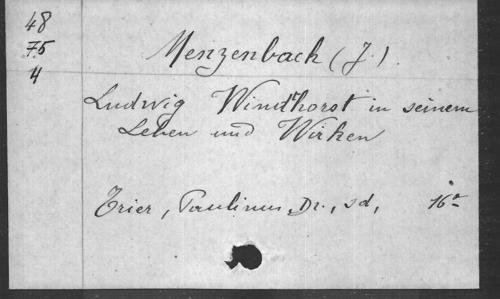 48
75
4
Menzenbach (J.)
Ludwig Windthorst in seinem
Leben und Wirken
Trier, Paulinus Dr., sd, 16°